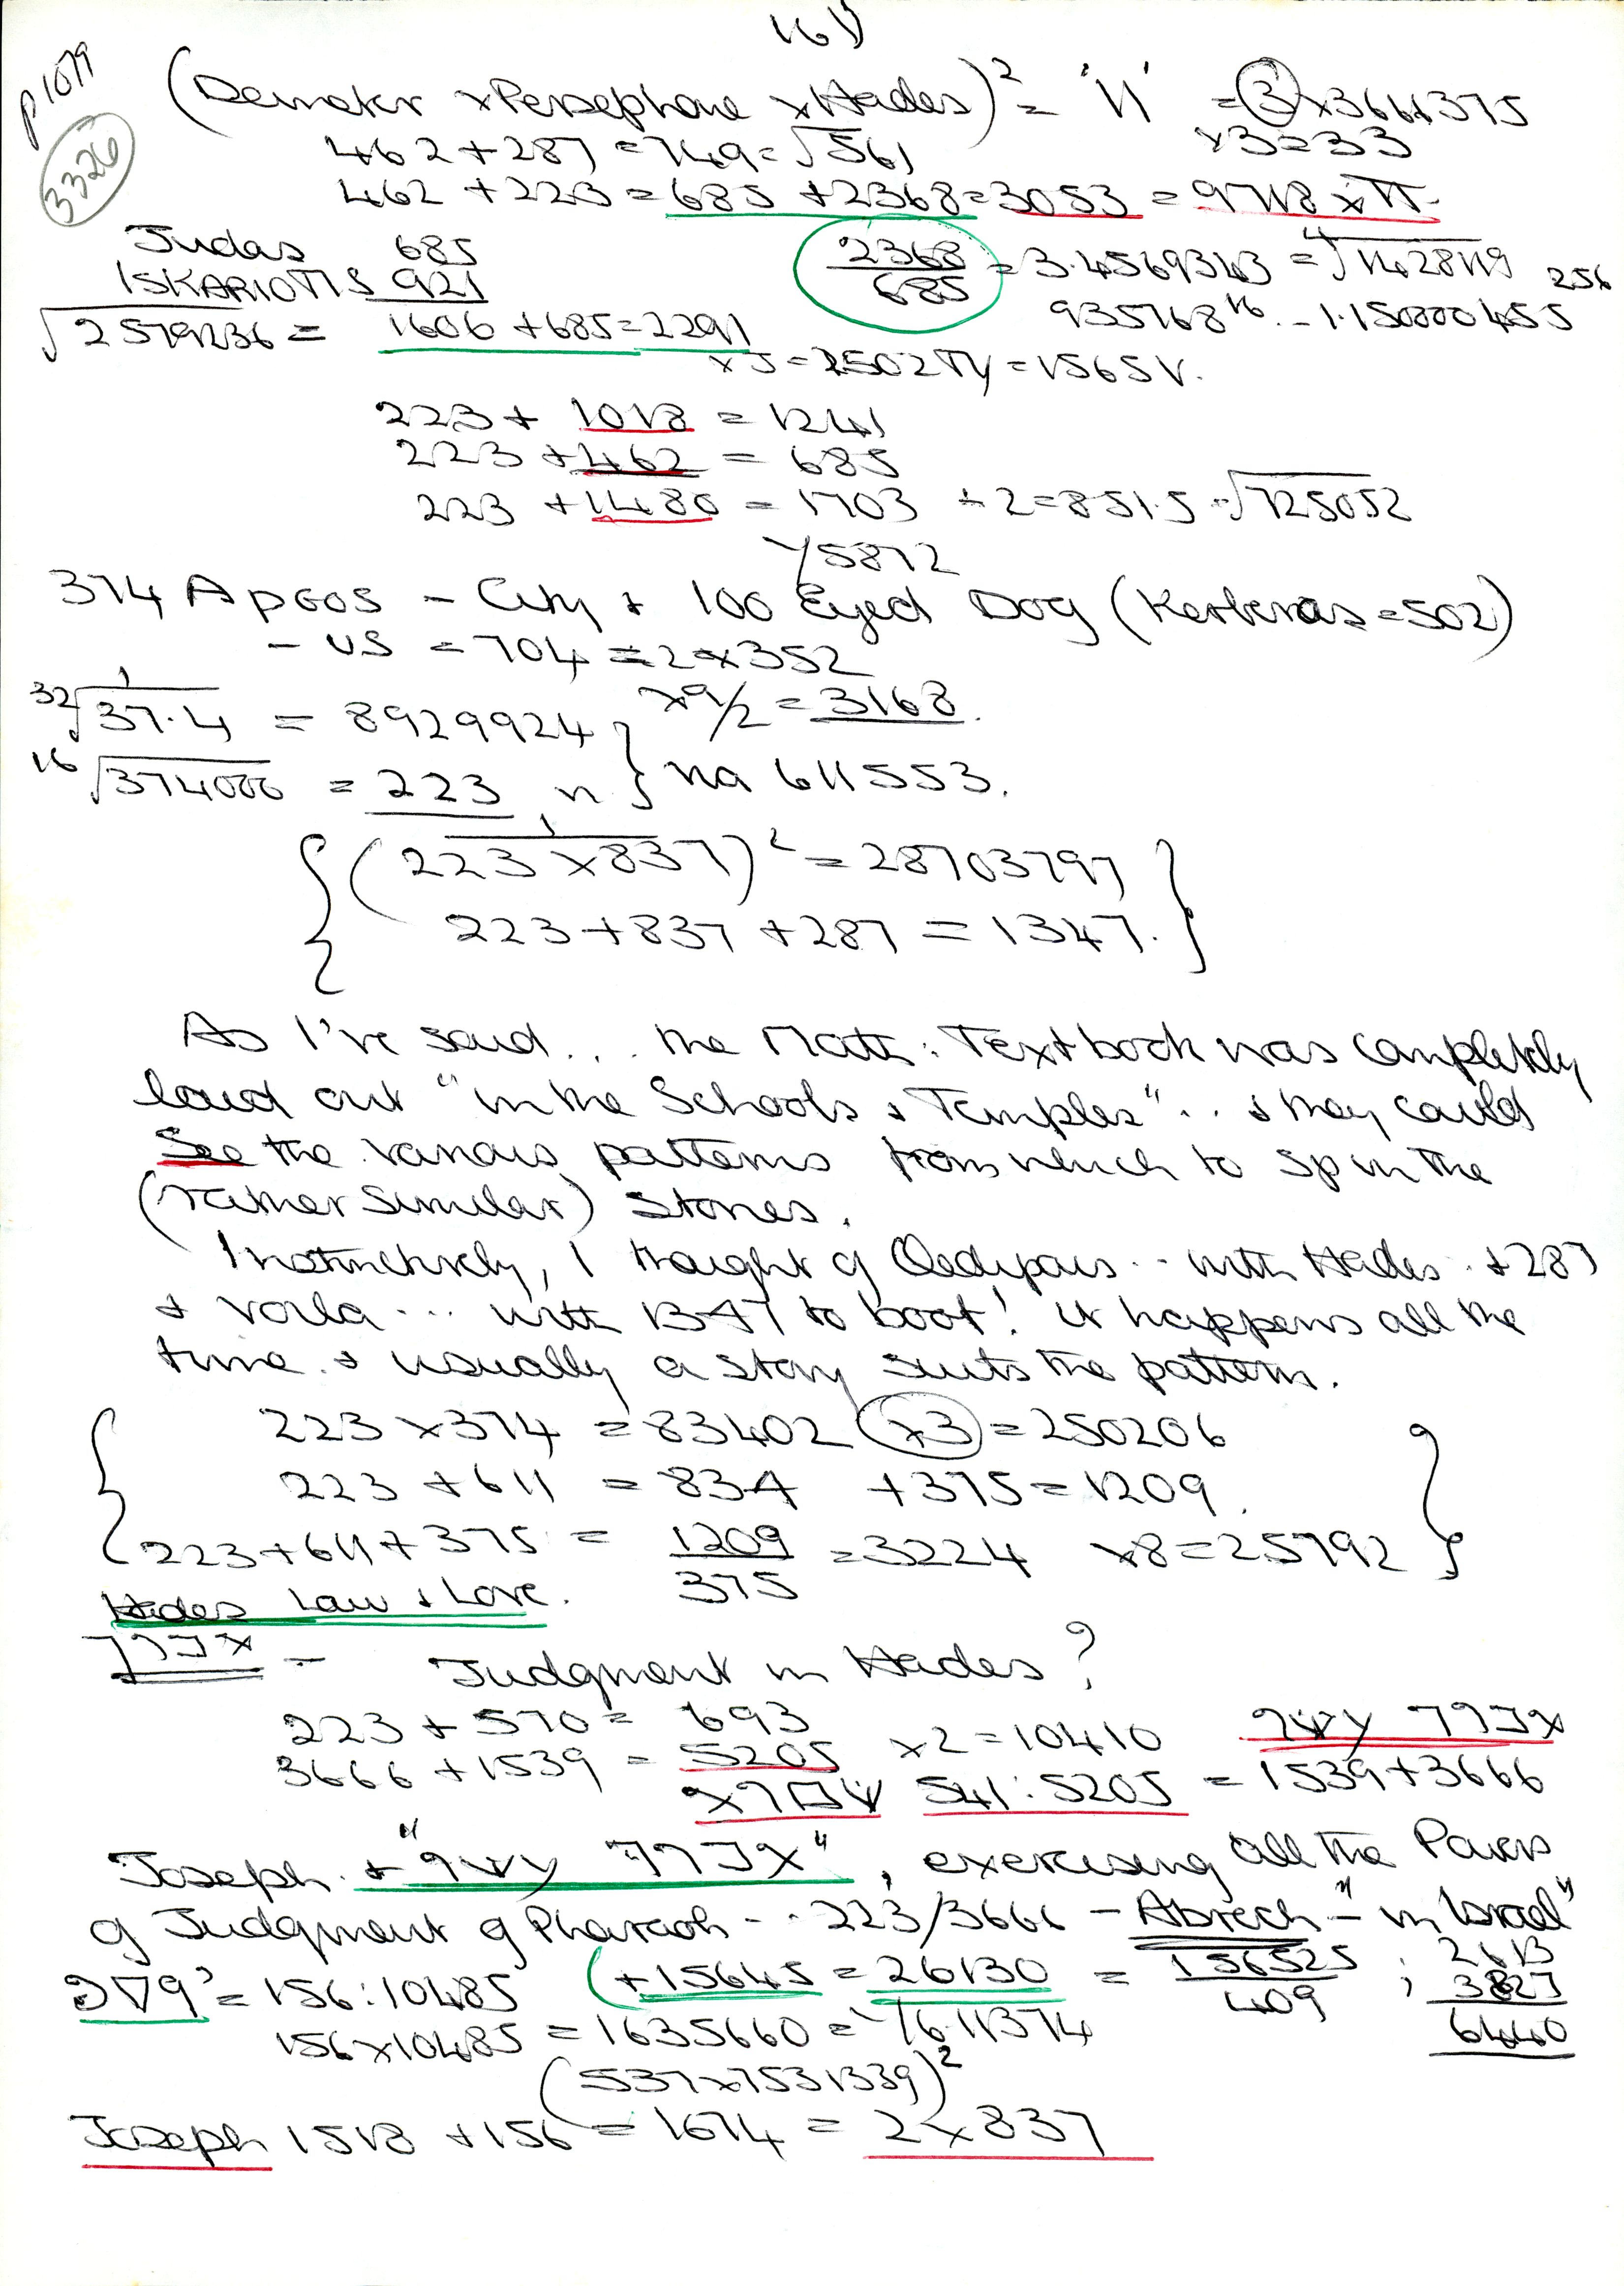 161)
p1079
3326
(Demeter x Persephone x Hades)² = '11' = 3 x 3611375
462 + 287 = 749 = √561 x3=33
462 + 223 = 685 + 2368 = 3053 = 9718 x π
Judas 685
2368/685 = 3.4569343 = ⁴√1428119 256
ISKARIOTIS 921
935768¹⁶ - 1.150000455
√2579236 = 1606 + 685 = 2291
223 + 1018 = 1241
223 + 462 = 685
223 + 1480 = 1703 ÷ 2 = 851.5 = √725052
√5872
374 Argos - City + 100 Eyed Dog (Kerberos = 502)
- US = 704 = 2 x 352
³²√37.4 = 8929924 } x 9/2 = 3168.
¹⁶√374000 = 223 } 611553.
{ (223 x 837)² = 28703797 }
{ 223 + 837 + 287 = 1347. }
As I've said... the Math: Textbook was completely
laid out "in the Schools & Temples"... & they could
See the various patterns from which to spin the
(rather similar) stories.
Instinctively, I thought of Oedipous... with Hades + 287
& voila... with 1347 to boot! it happens all the
time & usually a story suits the pattern.
{ 223 x 374 = 83402 x3 = 250206
223 + 611 = 834 + 375 = 1209.
223 + 611 + 375 = 1209/375 = 3224 x8 = 25792 }
Hades Law & Love.
= Judgment in Hades?
223 + 570 = 693
3666 + 1539 = 5205 x2 = 10410
541:5205 = 1539 + 3666
Joseph, exercising all the Powers
of Judgment of Pharaoh - .. 223/3666 - Abrech - "in Israel"
= 156:10485 (+ 15645 = 26130 = 156525/409 ; 2613
3827
6440
156 x 10485 = 1635660 = √6.11374
(537 x 7531339)²
Joseph 1518 + 156 = 1674 = 2 x 837